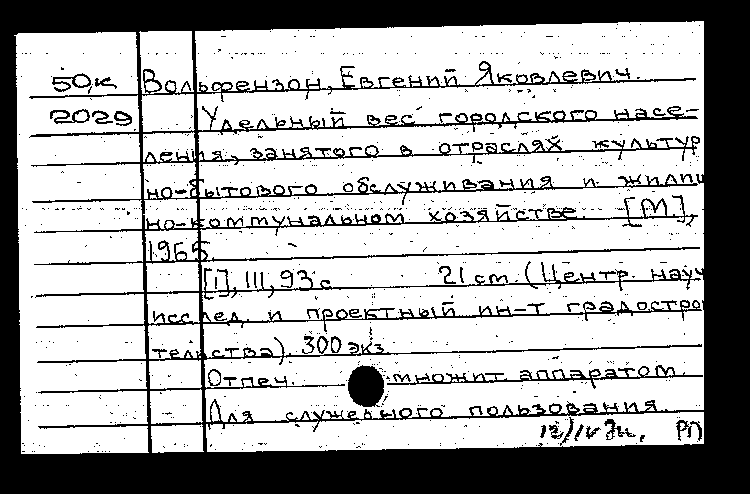 50к Вольфензон, Евгений Яковлевич.
2029 Удельный вес городского насе-
ления, занятого в отраслях культур
но-бытового обслуживания и жилищ
но-коммунальном хозяйстве. [М.],
1965.
[1], III, 93 с. 21 cm. (Центр. науч
исслед. и проектный ин-т градострои
тельства). 300 экз.
Отпеч. множит. аппаратом.
Для служебного пользования.
РП